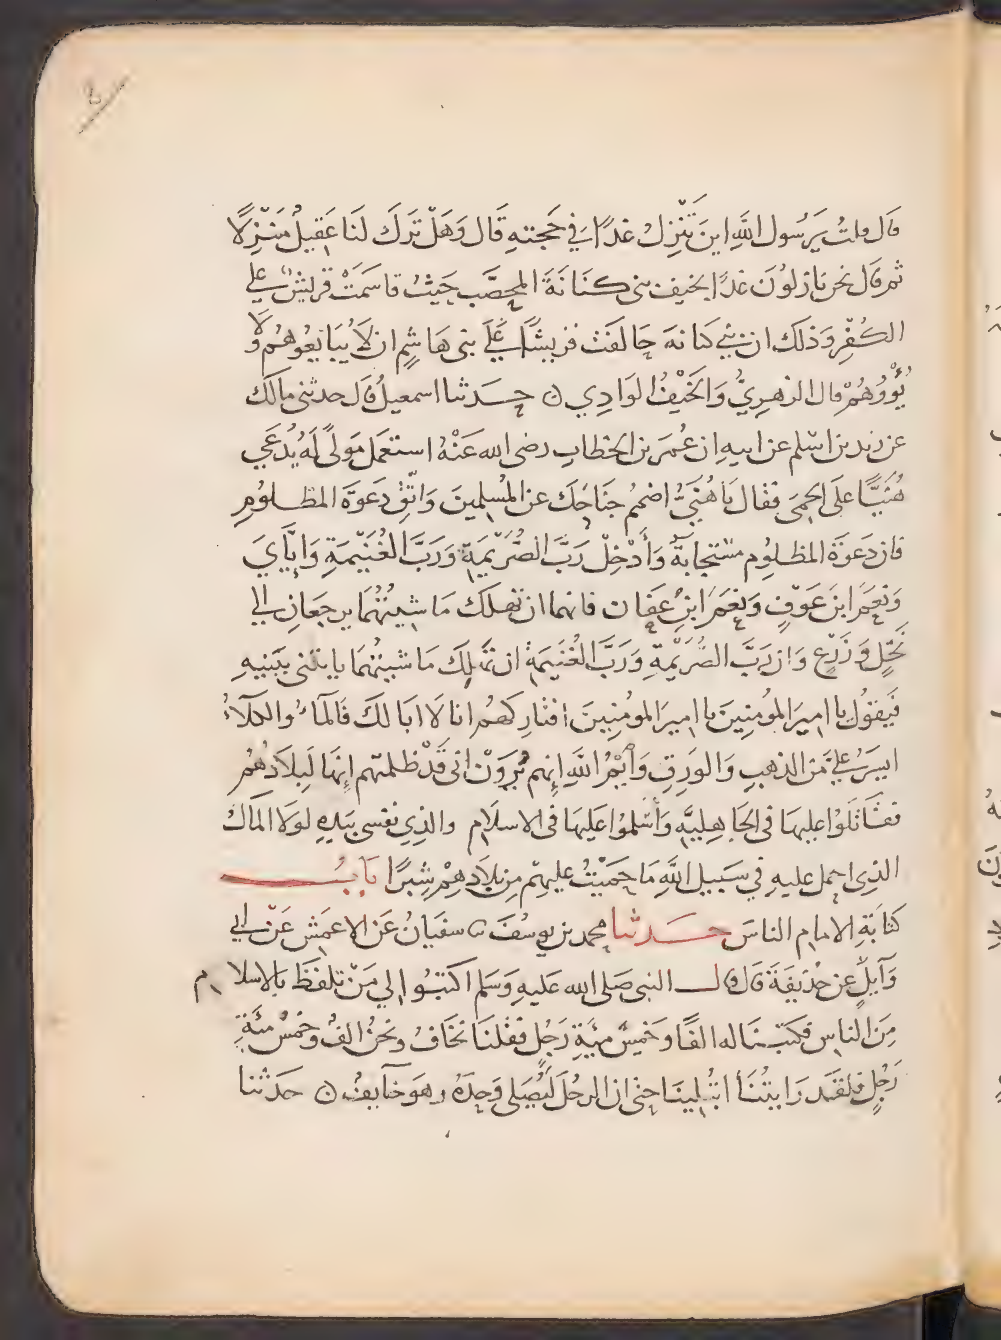 قال قلتُ يَرسُول اللَّهِ اينَ تَنْزِلُ غدًا في حَجتهِ قَال وَهَلْ تَرَكَ لَنَا عَقِيلٌ مَنْزِلًا
ثم قال نحن نازلوُنَ غدًا بخيف بنى كنَانَةَ المحصَّب حَيْثُ قاسَمَتْ قريشٌ على
الكُفْرِ وَذلكَ ان بَنِي كنانه حَالفَتْ قريشًا عَلَى بنى هَاشِمٍ ان لَا يُبَايعُوهُم وَلَا
يُؤْوُوهُمْ قال الزهرِيُّ وَالخَيْفُ الوَادِي ۞ حَدثنا اسمعيلُ قال حدثنى مالك
عن زيد بن اسْلم عن ابيهِ ان عُمَر بن الخطابِ رضى الله عَنْهُ استعمَل مَولًى لَهُ يُدعَي
هُنَيًّا على الحِمَى فقال يَا هُنَيُّ اضمُم جنَاحَك عن المُسْلِمينَ وَاتّقِ دَعوَةَ المظلوُمِ
فان دَعوَةَ المظلوُم مُسْتجابةٌ وَأَدْخِلْ رَبَّ الصُّرَيْمَةِ وَرَبَّ الغُنَيْمَةِ وَإيَّايَ
وَنَعَمَ ابنِ عَوْفٍ وَنعَمَ ابنِ عَفان فانهما ان تهلك مَاشِيَتُهُمَا يرجعَانِ إلى
نَخْلٍ وَ زَرْعٍ وَان رَبَّ الصُّرَيْمةِ وَرَبَّ الغُنَيمَةِ ان تَهلِك مَاشيتُهُمَا ياتنى ببنيهِ
فَيقوُل يا اميرَ المؤمِنِينَ يا اميرَ المومِنِينَ افتَارِكهُم انا لا ابَا لكَ فَالمَاءُ والكلَأُ
ايسَرُ عَلَيَّ مِنَ الذهبِ وَالوَرِقِ وَأَيْمُ اللَّهِ إنهم لَيُرَوْنَ انى قَدْ ظلمتهم إنهَا لَبِلَادُهُم
فقَاتَلوُا عليهَا فى الجَاهِليَّه وَأَسْلموُا عَليهَا فى الاسلَامِ والذِى نفسى بيَدهِ لولَا المَالُ
الذِى احمل عليهِ فى سَبيل اللَّهِ مَا حَمَيْتُ عليهِمْ مِن بلَادِهِمْ شِبرًا بَابُ
كتابَةِ الامام الناسَ حَدثنا محمد بن يوسُفَ ثنا سفيَانُ عَنِ الاعمَش عَنْ ابى
وَآيلٍ عن حُذيفَةَ قَال قال النبى صَلى الله عَليهِ وَسَلم اكتبوُا لي مَنْ تلفظَ بالاسلَام
مِنَ الناسِ فكتبنَا له الفًا وَ خمسَ مِئَةِ رَجُلٍ فقلنَا نخَافُ ونحنُ الفٌ وخمسُ مئَةِ
رَجُلٍ فلقَد رَايتُنَا ابْتُلينَا حتى ان الرجُلَ لَيُصَلى وَحدَهُ وهوَ خآيفٌ ۞ حَدثنا